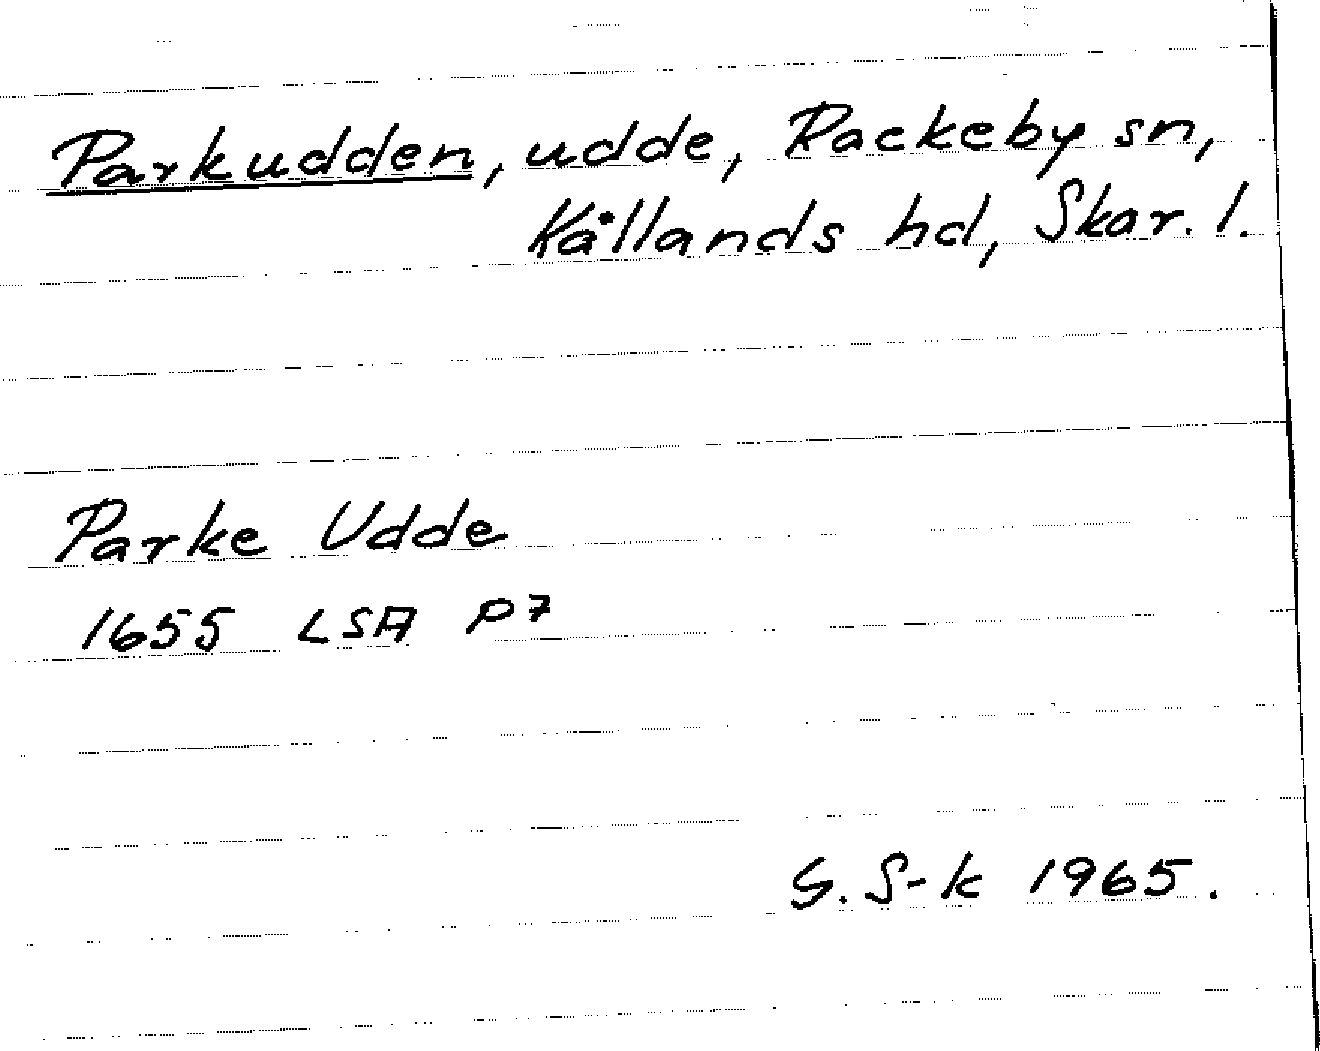 Parkudden, udde, Rackeby sn,
Kållands hd, Skar. l.
Parke Udde
1655 LSA P7
G. S-k 1965.